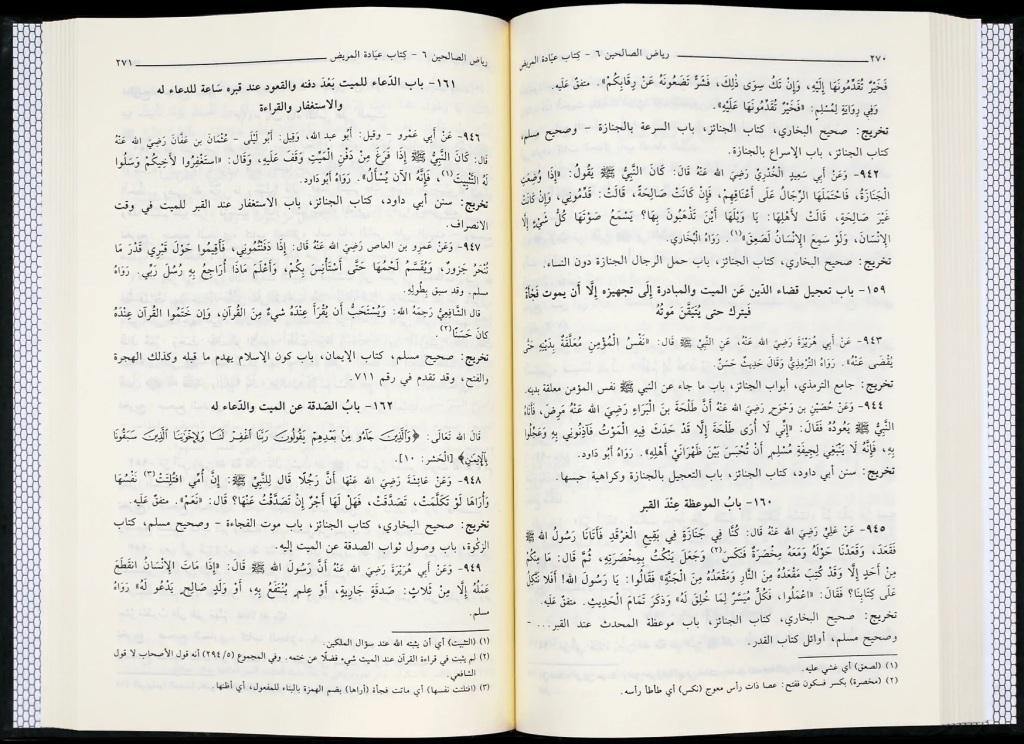 ٢٧٠ رياض الصالحين ٦ - كتاب عيادة المريض
فَخَيْرٌ تُقَدِّمُونَهَا إِلَيْهِ، وَإِنْ تَكُ سِوَى ذَلِكَ، فَشَرٌّ تَضَعُونَهُ عَنْ رِقَابِكُمْ». متفقٌ عَلَيه.
وَفِي رِوَايَةٍ لِمُسْلِمٍ: «فَخَيْرٌ تُقَدِّمُونَهَا عَلَيْهِ».
تخريج: صحيح البخاري، كتاب الجنائز، باب السرعة بالجنازة - وصحيح مسلم،
كتاب الجنائز، باب الإسراع بالجنازة.
٩٤٢- وَعَنْ أبي سَعِيدٍ الْخُدْرِيِّ رَضِيَ الله عَنْهُ قَالَ: كَانَ النَّبِيُّ ﷺ يَقُولُ: «إِذَا وُضِعَتِ
الْجَنَازَةُ، فَاحْتَمَلَهَا الرِّجَالُ عَلَى أَعْنَاقِهِمْ، فَإِنْ كَانَتْ صَالِحَةً، قَالَتْ: قَدِّمُونِي، وَإِنْ كَانَتْ
غَيْرَ صَالِحَةٍ، قَالَتْ لأَهْلِهَا: يَا وَيْلَهَا أَيْنَ تَذْهَبُونَ بِهَا؟ يَسْمَعُ صَوْتَهَا كُلُّ شَيْءٍ إلَّا
الإنْسَانَ، وَلَوْ سَمِعَ الإِنْسَانُ لَصَعِقَ»(١). رَوَاهُ الْبُخَاري.
تخريج: صحيح البخاري، كتاب الجنائز، باب حمل الرجال الجنازة دون النساء.
١٥٩- باب تعجيل قضاء الدَين عَن الميت والمبادرة إلَى تجهيزه إلَّا أن يموت فَجْأَةً
فَيترك حتى يُتَيَقَّنَ مَوتُهُ
٩٤٣- عَنْ أَبي هُرَيْرَةَ رَضِيَ الله عَنْهُ، عَنِ النَّبِيِّ ﷺ قَالَ: «نَفْسُ الْمُؤْمِنِ مُعَلَّقَةٌ بِدَيْنِهِ حَتَّى
يُقْضَى عَنْهُ». رَوَاهُ التِّرْمِذِيُّ وَقَالَ حَدِيثٌ حَسَنٌ.
تخريج: جامع الترمذي، أبواب الجنائز، باب ما جاء عن النبي ﷺ نفس المؤمن معلقة بدينه.
٩٤٤- وَعَنْ حُصَيْنِ بن وَحْوَحٍ رَضِيَ الله عَنْهُ أَنَّ طَلْحَةَ بْنَ الْبَرَاءِ رَضِيَ الله عَنْهُ مَرِضَ، فَأَتَاهُ
النَّبِيُّ ﷺ يَعُودُهُ فَقَالَ: «إنِّي لَا أُرَى طَلْحَةَ إلَّا قَدْ حَدَثَ فِيهِ الْمَوْتُ فَآذِنُونِي بِهِ وَعَجِّلُوا
بِهِ، فَإِنَّهُ لَا يَنْبَغِي لِجِيفَةِ مُسْلِمٍ أَنْ تُحْبَسَ بَيْنَ ظَهْرَانَيْ أَهْلِهِ». رَوَاهُ أبُو دَاود.
تخريج: سنن أبي داود، كتاب الجنائز، باب التعجيل بالجنازة وكراهية حبسها.
١٦٠- بابُ الموعظة عِنْدَ القبر
٩٤٥- عَنْ عَلِيٍّ رَضِيَ الله عَنْهُ قَالَ: كُنَّا فِي جَنَازَةٍ فِي بَقِيعِ الْغَرْقَدِ فَأَتَانَا رَسُولُ الله ﷺ
فَقَعَدَ، وَقَعَدْنَا حَوْلَهُ وَمَعَهُ مِخْصَرَةٌ فَنَكَسَ(٢) وَجَعَلَ يَنْكُتُ بِمِخْصَرَتِهِ، ثُمَّ قَالَ: مَا مِنْكُمْ
مِنْ أَحَدٍ إلَّا وَقَدْ كُتِبَ مَقْعَدُهُ مِنَ النَّارِ وَمَقْعَدُهُ مِنَ الْجَنَّةِ» فَقَالُوا: يَا رَسُولَ الله! أَفَلا نَتَّكِلُ
عَلَى كِتَابِنَا؟ فَقَالَ: «اعْمَلُوا، فَكُلٌّ مُيَسَّرٌ لِمَا خُلِقَ لَهُ» وَذَكَرَ تَمَامَ الْحَدِيثِ. متفقٌ عَلَيه.
تخريج: صحيح البخاري، كتاب الجنائز، باب موعظة المحدث عند القبر... -
وصحيح مسلم، أوائل كتاب القدر.
(١) (لصعق) أي غشي عليه.
(٢) (مخصرة) بكسر فسكون ففتح: عصا ذات رأس معوج (نكس) أي طأطأ رأسه.
رياض الصالحين ٦ - كتاب عيادة المريض ٢٧١
١٦١- باب الدّعاء للميت بَعْدَ دفنه والقعود عند قبره سَاعة للدعاء له
والاستغفار والقراءة
٩٤٦- عَنْ أبي عَمْرو - وقيل: أبُو عبد الله، وَقيل: أَبُو لَيْلَى - عُثْمَانَ بن عَفَّانَ رَضِيَ الله عَنْهُ
قال: كَانَ النَّبِيُّ ﷺ إذَا فَرَغَ مِنْ دَفْنِ الْمَيِّتِ وَقَفَ عَلَيهِ، وَقَالَ: «اسْتَغْفِرُوا لأَخِيكُمْ وَسَلُوا
لَهُ التَّثْبِيتَ(١)، فَإنَّهُ الآنَ يُسْأَلُ». رَوَاهُ أبُو دَاوُد.
تخريج: سنن أبي داود، كتاب الجنائز، باب الاستغفار عند القبر للميت في وقت
الانصراف.
٩٤٧- وَعَنْ عَمرِو بن العاص رَضِيَ الله عَنْهُ قَال: إذَا دَفَنْتُمُونِي، فَأَقِيمُوا حَوْلَ قَبْرِي قَدْرَ مَا
تُنْحَرُ جَزُورٌ، وَيُقَسَّمُ لَحْمُهَا حَتَّى أَسْتَأْنِسَ بِكُمْ، وَأَعْلَمَ مَاذَا أُرَاجِعُ بِهِ رُسُلَ رَبِّي. رَوَاهُ
مسلم. وقد سبق بِطُولِهِ.
قال الشَّافِعِيُّ رَحِمَهُ الله: وَيُسْتَحَبُّ أَنْ يُقْرَأَ عِنْدَهُ شَيءٌ مِنَ الْقُرآنِ، وَإن خَتَمُوا الْقُرآن عِنْدَهُ
كَانَ حَسَنًا(٢)
تخريج: صحيح مسلم، كتاب الإيمان، باب كون الإسلام يهدم ما قبله وكذلك الهجرة
والفتح، وقد تقدم في رقم ٧١١.
١٦٢- بابُ الصّدقة عن الميت والدّعاء له
قَالَ الله تَعَالَى: ﴿وَالَّذِينَ جَاءُو مِنْ بَعْدِهِمْ يَقُولُونَ رَبَّنَا اغْفِرْ لَنَا وَلِإِخْوَانِنَا الَّذِينَ سَبَقُونَا
بِالْإِيمَانِ﴾ [الْحَشْر: ١٠].
٩٤٨- وَعَنْ عَائِشَةَ رَضِيَ الله عَنْهَا أَنَّ رَجُلًا قَالَ لِلنَّبِيِّ ﷺ: إنَّ أُمِّي افْتُلِتَتْ(٣) نَفْسُهَا
وَأُرَاهَا لَوْ تَكَلَّمَتْ، تَصَدَّقَتْ، فَهَلْ لَهَا أَجْرٌ إنْ تَصَدَّقْتُ عَنْهَا؟ قال: «نَعَمْ». متفقٌ عَلَيه.
تخريج: صحيح البخاري، كتاب الجنائز، باب موت الفجاءة - وصحيح مسلم، كتاب
الزكوة، باب وصول ثواب الصدقة عن الميت إليه.
٩٤٩- وَعَنْ أبي هُرَيْرَةَ رَضِيَ الله عَنْهُ أَنَّ رَسُولَ الله ﷺ قَالَ: «إذَا مَاتَ الإنْسَانُ انْقَطَعَ
عَمَلُهُ إلَّا مِنْ ثَلاثٍ: صَدَقَةٍ جَارِيَةٍ، أَوْ عِلمٍ يُنْتَفَعُ بِهِ، أَوْ وَلَدٍ صَالِحٍ يَدْعُو لَهُ» رَوَاهُ
مسلم.
(١) (التثبيت) أي أن يثبته الله عند سؤال الملكين.
(٢) لم يثبت في قراءة القرآن عند الميت شيء فضلًا عن ختمه. وفي المجموع (٢٩٤/٥) أنه قول الأصحاب لا قول
الشافعي.
(٣) (افتلتت نفسها) أي ماتت فجأة (أراها) بضم الهمزة بالبناء للمفعول، أي أظنها.